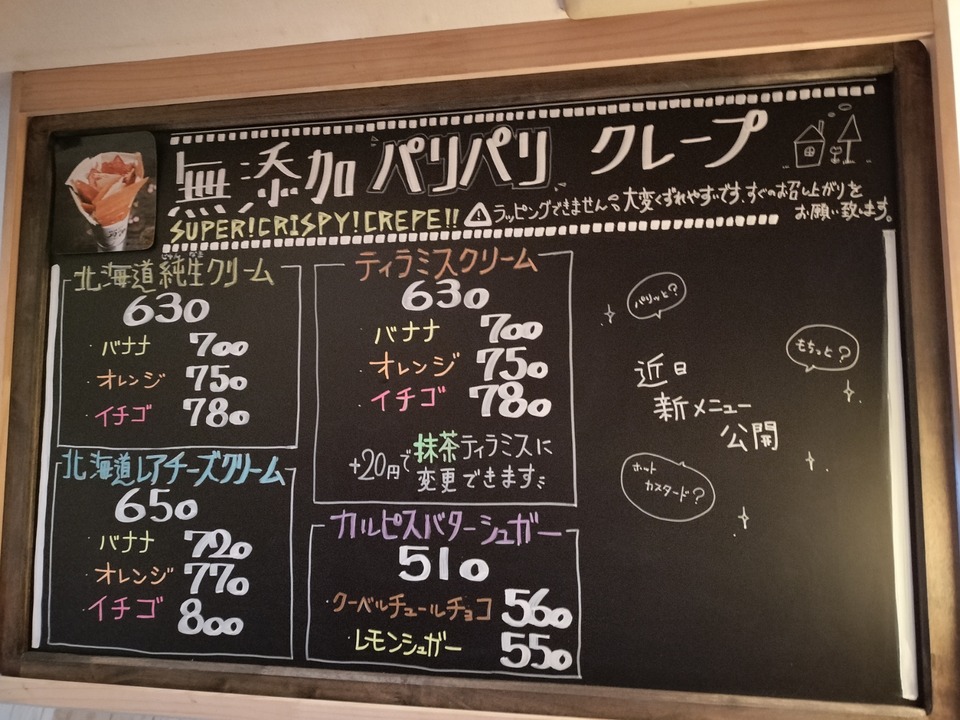 無添加 パリパリ クレープ
SUPER!CRISPY!CREPE!!
ラッピングできません。大変くずれやすいです。すぐのお召し上がりを
お願い致します。
北海道純生クリーム
じゅん なま
630
バナナ 700
オレンジ 750
イチゴ 780
北海道レアチーズクリーム
650
バナナ 720
オレンジ 770
イチゴ 800
ティラミスクリーム
630
バナナ 700
オレンジ 750
イチゴ 780
+20円で抹茶ティラミスに
変更できます
カルピスバターシュガー
510
クーベルチュールチョコ 560
レモンシュガー 550
パリッと?
もちっと?
近日
新メニュー
公開
ホット
カスタード?